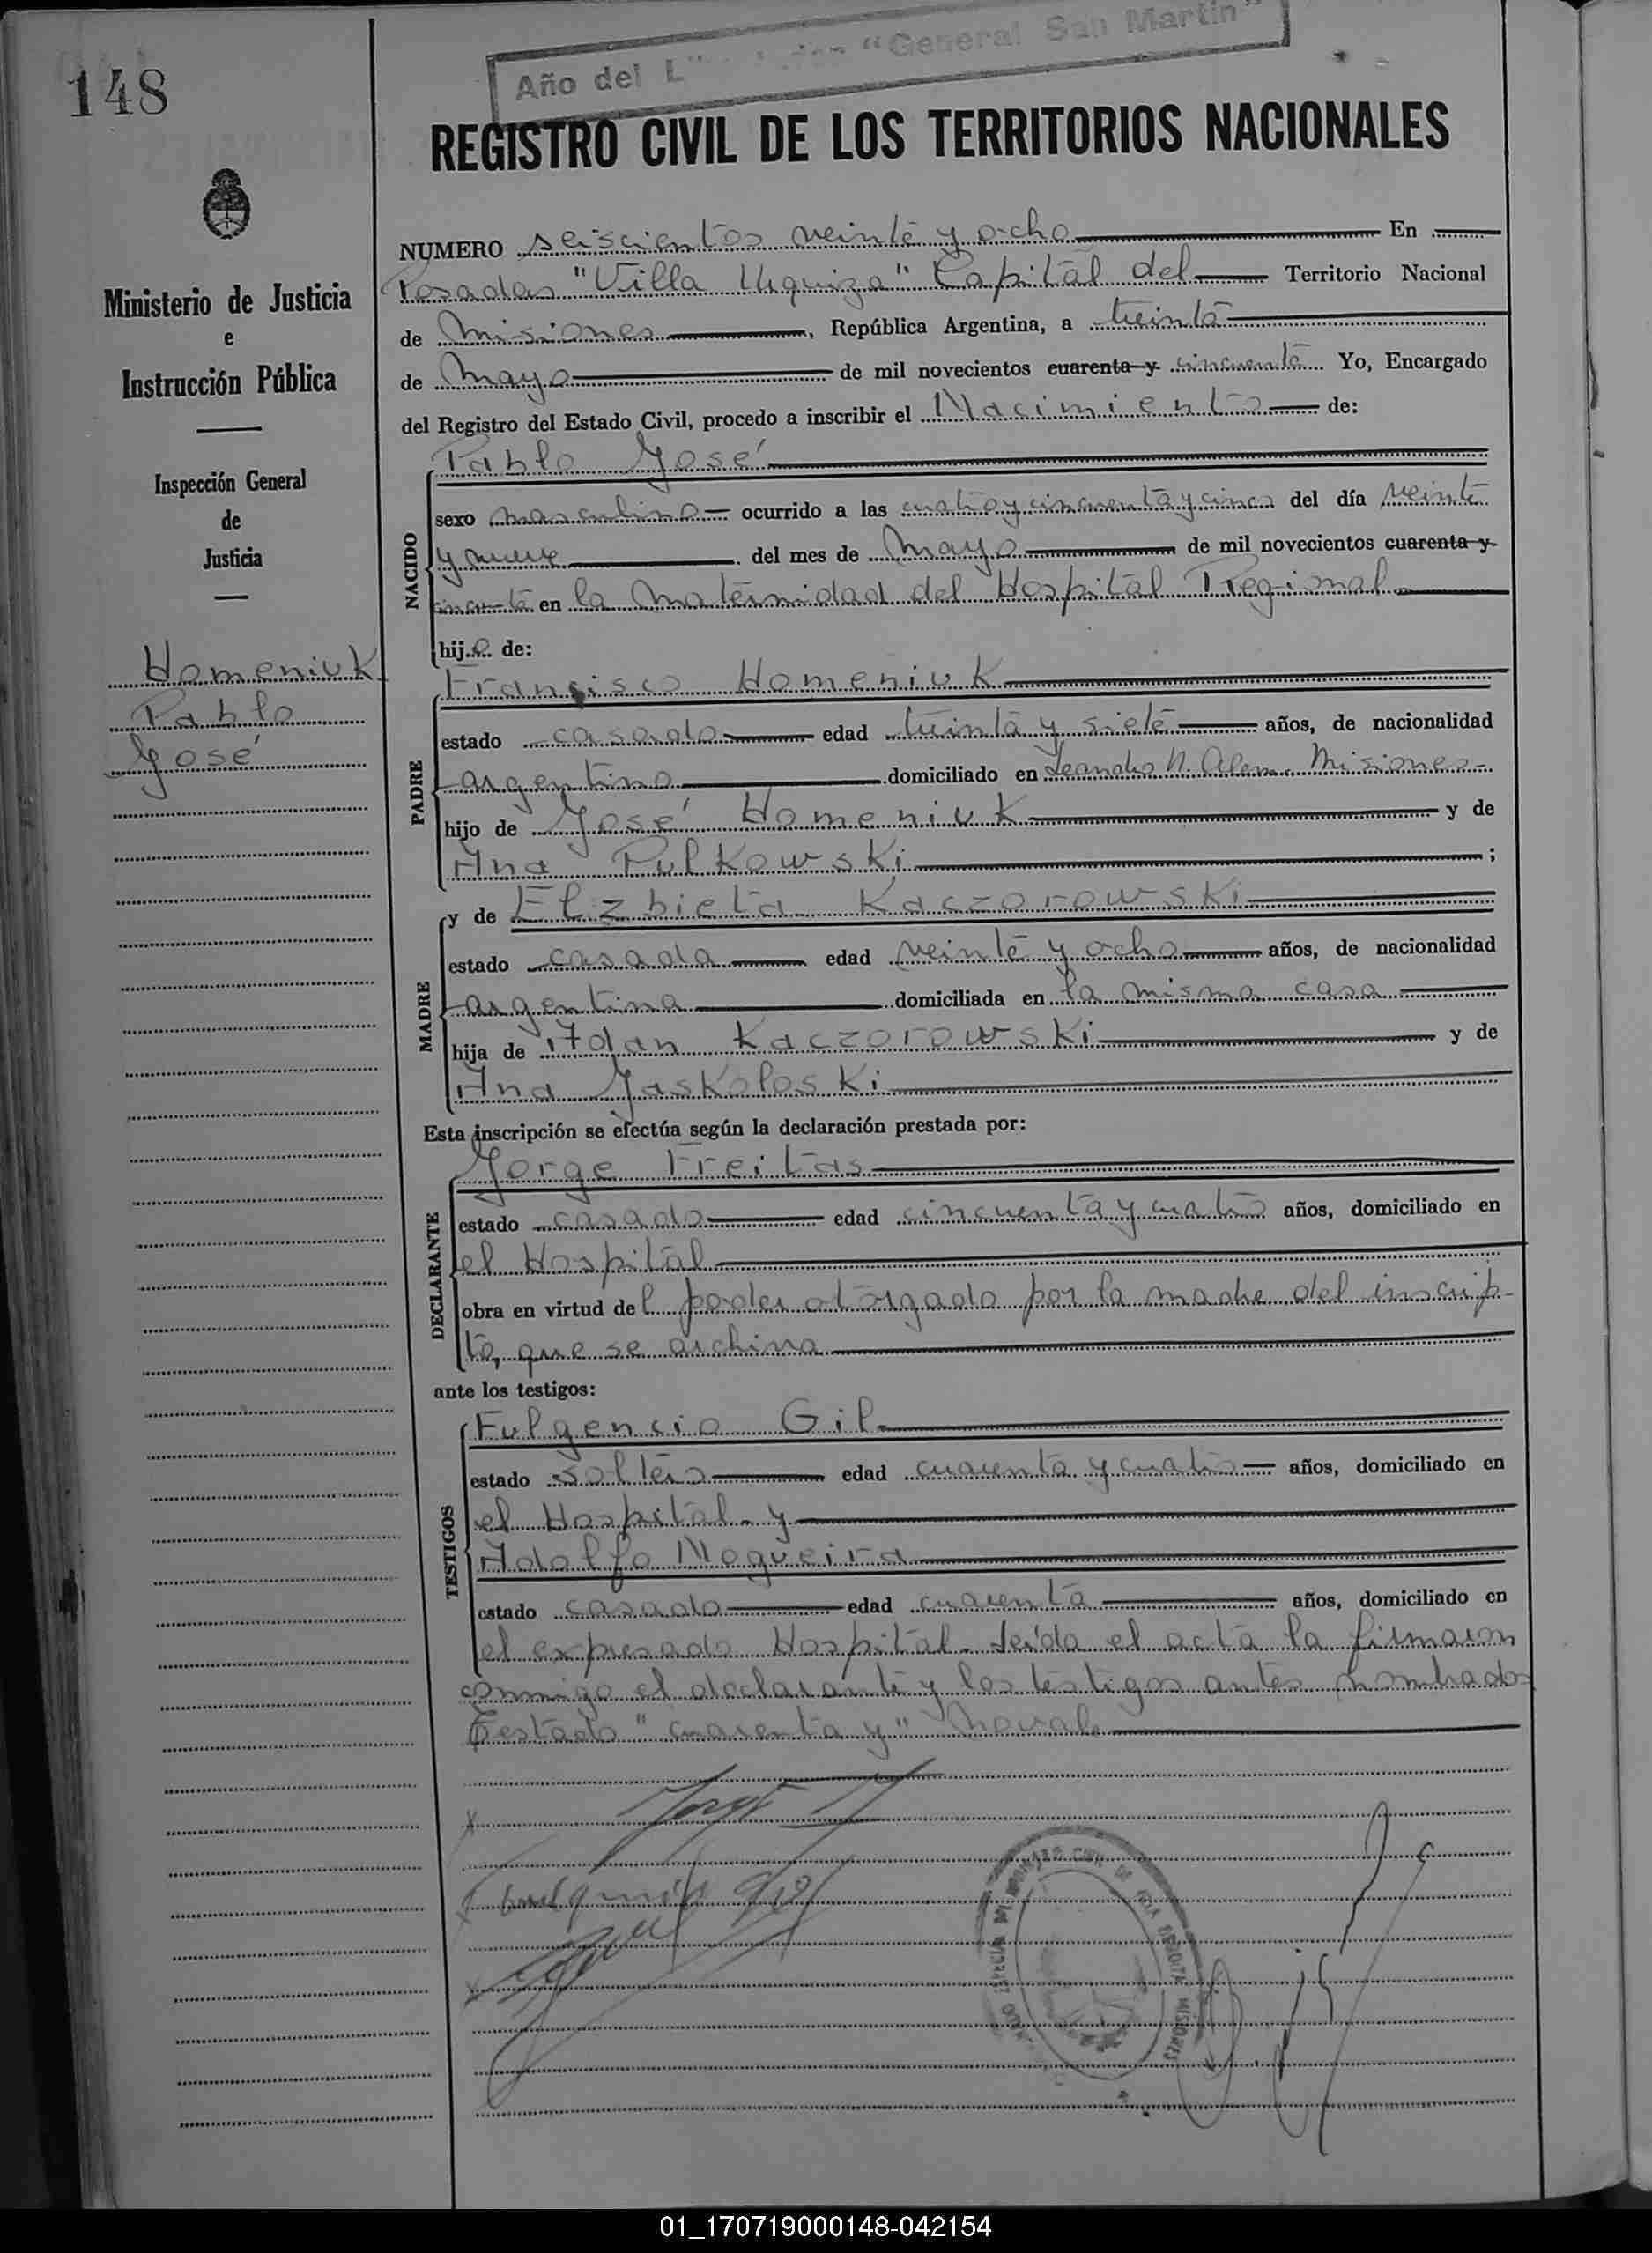 148
Año del L "General San Martín"
REGISTRO CIVIL DE LOS TERRITORIOS NACIONALES
Ministerio de Justicia
e
Instrucción Pública
Inspección General
de
Justicia
Homeniuk
Pablo
José
NUMERO seiscientos veinte y ocho En
Posadas "Villa Urquiza" Capital del Territorio Nacional
de Misiones, República Argentina, a treinta
de Mayo de mil novecientos cuarenta y cincuenta Yo, Encargado
del Registro del Estado Civil, procedo a inscribir el Nacimiento de:
NACIDO
Pablo José
sexo masculino ocurrido a las cuatro y cincuenta y cinco del día veinte
y nueve del mes de Mayo de mil novecientos cuarenta y
cincuenta en la Maternidad del Hospital Regional
hijo de:
PADRE
Francisco Homeniuk
estado casado edad treinta y siete años, de nacionalidad
argentino domiciliado en Leandro N. Alem. Misiones
hijo de José Homeniuk y de
Ana Pulkowski;
MADRE
y de Elzbieta Kaczorowski
estado casada edad veinte y ocho años, de nacionalidad
argentina domiciliada en la misma casa
hija de Adan Kaczorowski y de
Ana Jaskoloski
Esta inscripción se efectúa según la declaración prestada por:
DECLARANTE
Jorge Freitas
estado casado edad cincuenta y cuatro años, domiciliado en
el Hospital
obra en virtud del poder otorgado por la madre del inscrip-
to, que se archiva
ante los testigos:
TESTIGOS
Fulgencio Gil
estado soltero edad cuarenta y cuatro años, domiciliado en
el Hospital y
Adolfo Nogueira
estado casado edad cuarenta años, domiciliado en
el expresado Hospital. Leída el acta la firmaron
conmigo el declarante y los testigos antes nombrados
Testado "cuarenta y" No vale
01_170719000148-042154